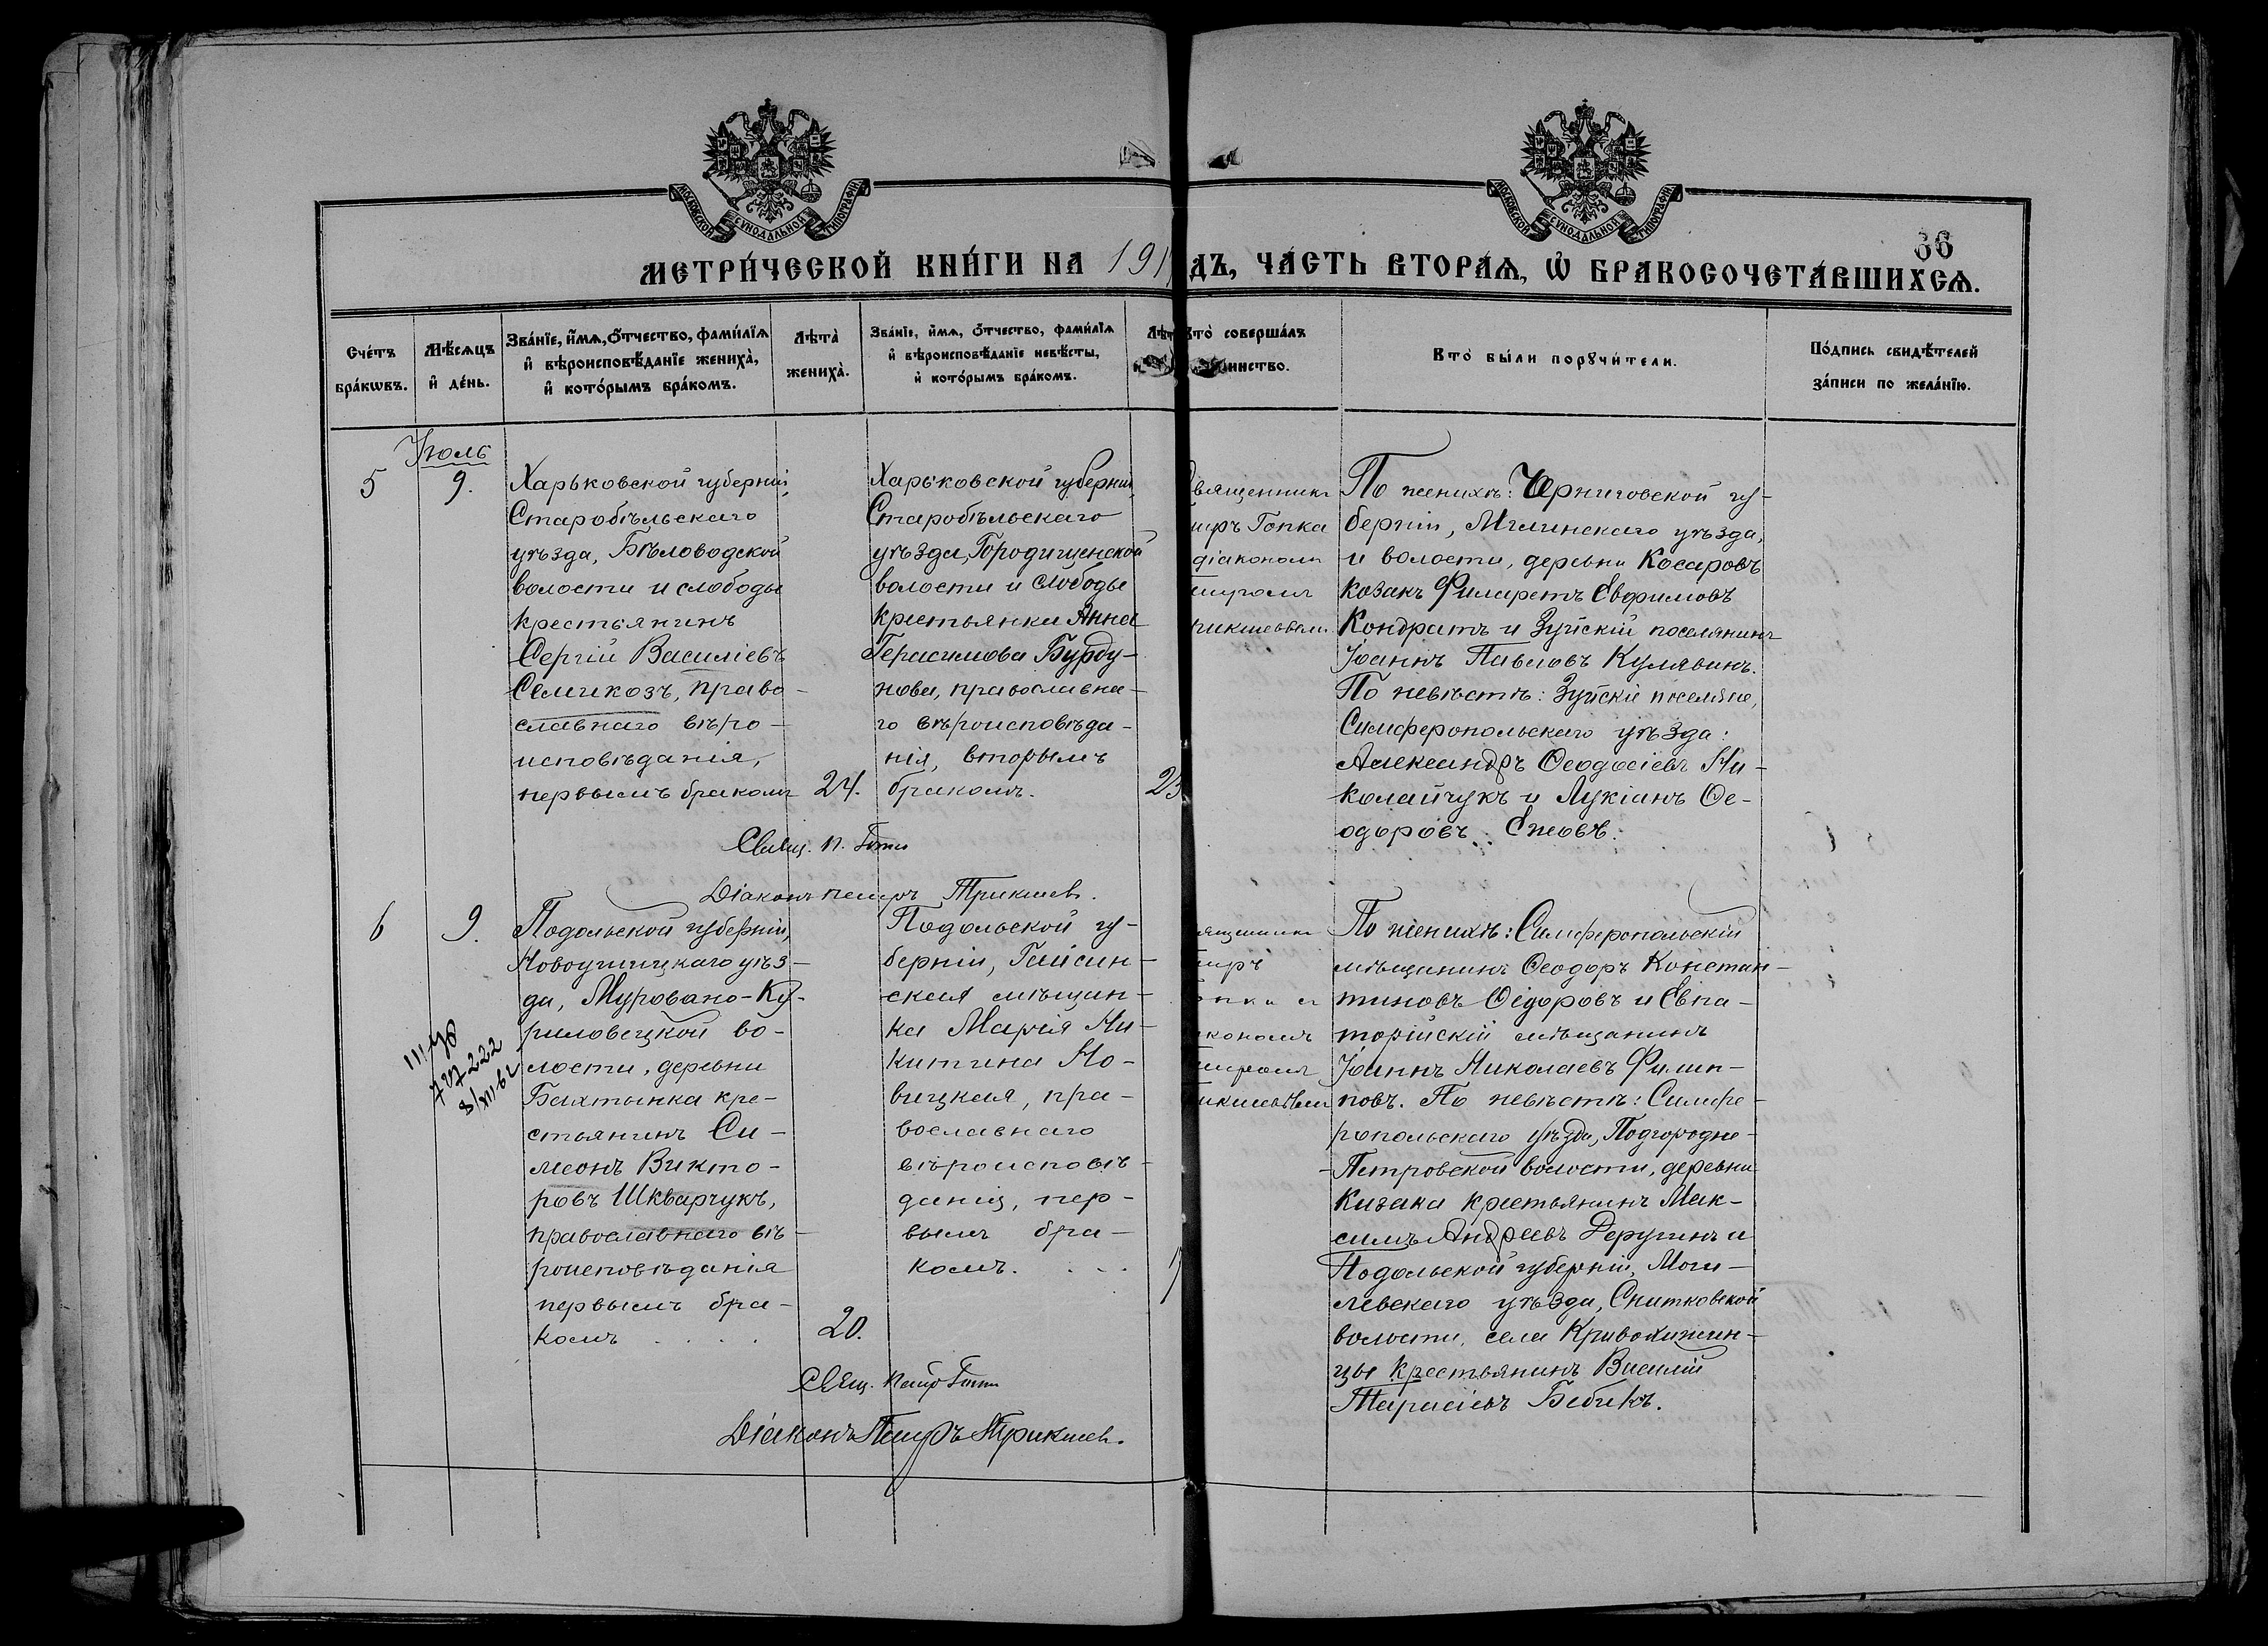 МОСКОВСКОЙ СУНОДАЛЬНОЙ ТИПОГРАФІИ
МОСКОВСКОЙ СУНОДАЛЬНОЙ ТИПОГРАФІИ
66
МЕТРИ́ЧЕСКОЙ КНИ́ГИ НА 191
ДЪ, ЧА́СТЬ ВТОРА́Ѧ, Ѡ҆ БРАКОСОЧЕТА́ВШИХСѦ.
Сче́тъ
бра́кωвъ.
Мѣ́сѧцъ
и҆ де́нь.
Зва́нїе, и҆́мѧ, о҆́тчество, фами́лїѧ
и҆ вѣроисповѣ́данїе жениха̀,
и҆ кото́рымъ бра́комъ.
Лѣта̀
жениха̀.
Зва́нїе, и҆́мѧ, о҆́тчество, фами́лїѧ
и҆ вѣроисповѣ́данїе невѣ́сты,
и҆ кото́рымъ бра́комъ.
Лѣт
Кто̀ соверша́лъ
инство.
Кто̀ бы́ли порꙋчи́тели.
По́дпись свидѣ́телей
за́писи по жела́нїю.
Іюль
5
9.
Харьковской губерніи,
Старобѣльскаго
уѣзда, Бѣловодской
волости и слободы
крестьянинъ
Сергій Василіевъ
Семикозъ, право-
славнаго вѣро-
исповѣданія,
первымъ бракомъ
24.
Харьковской губерніи,
Старобѣльскаго
уѣзда, Городищенской
волости и слободы
крестьянка Анна
Герасимова Бурду-
нова, православна-
го вѣроисповѣда-
нія, вторымъ
бракомъ.
23
вященникъ
тръ Гопка
діакономъ
етромъ
рикшевымъ
По женихѣ: Черниговской гу-
берніи, Мглинскаго уѣзда,
и волости, деревни Косаровъ
козакъ Филаретъ Евфимовъ
Кондратъ и Зуйскій поселянинъ
Іоаннъ Павловъ Кулявинъ.
По невѣстѣ: Зуйскіе поселяне,
Симферопольскаго уѣзда:
Александръ Ѳеодосіевъ Ни-
колайчукъ и Лукіанъ Ѳе-
одоровъ Ежовъ.
Свящ. П. Гопка
Діаконъ Петръ Трикшев.
6
9.
Подольской губерніи,
Новоушицкаго уѣз-
да, Муровано-Ку-
риловецкой во-
лости, деревни
Бахтынка кре-
стьянинъ Си-
меонъ Викто-
ровъ Шкварчукъ,
православнаго вѣ-
роисповѣданія
первымъ бра-
комъ . . . .
20.
Подольской гу-
берніи, Гайсин-
ская мѣщан-
ка Марія Ни-
китина Но-
вицкая, пра-
вославнаго
вѣроисповѣ-
данія, пер-
вымъ бра-
комъ. . . .
ященникъ
етръ
опка и
акономъ
етромъ
рикшевымъ
По женихѣ: Симферопольскій
мѣщанинъ Ѳеодоръ Констан-
тиновъ Ѳедоровъ и Евпа-
торійскій мѣщанинъ
Іоаннъ Николаевъ Филип-
повъ. По невѣстѣ: Симфе-
ропольскаго уѣзда, Подгородне-
-Петровской волости, деревни
Кизака крестьянинъ Мак-
симъ Андреевъ Деругинъ и
Подольской губерніи, Моги-
левскаго уѣзда, Снитковской
волости, села Кривохижин-
цы крестьянинъ Василій
Тарасіевъ Бабикъ.
Свящ. Петръ Гопка
Діаконъ Петръ Трикшев.